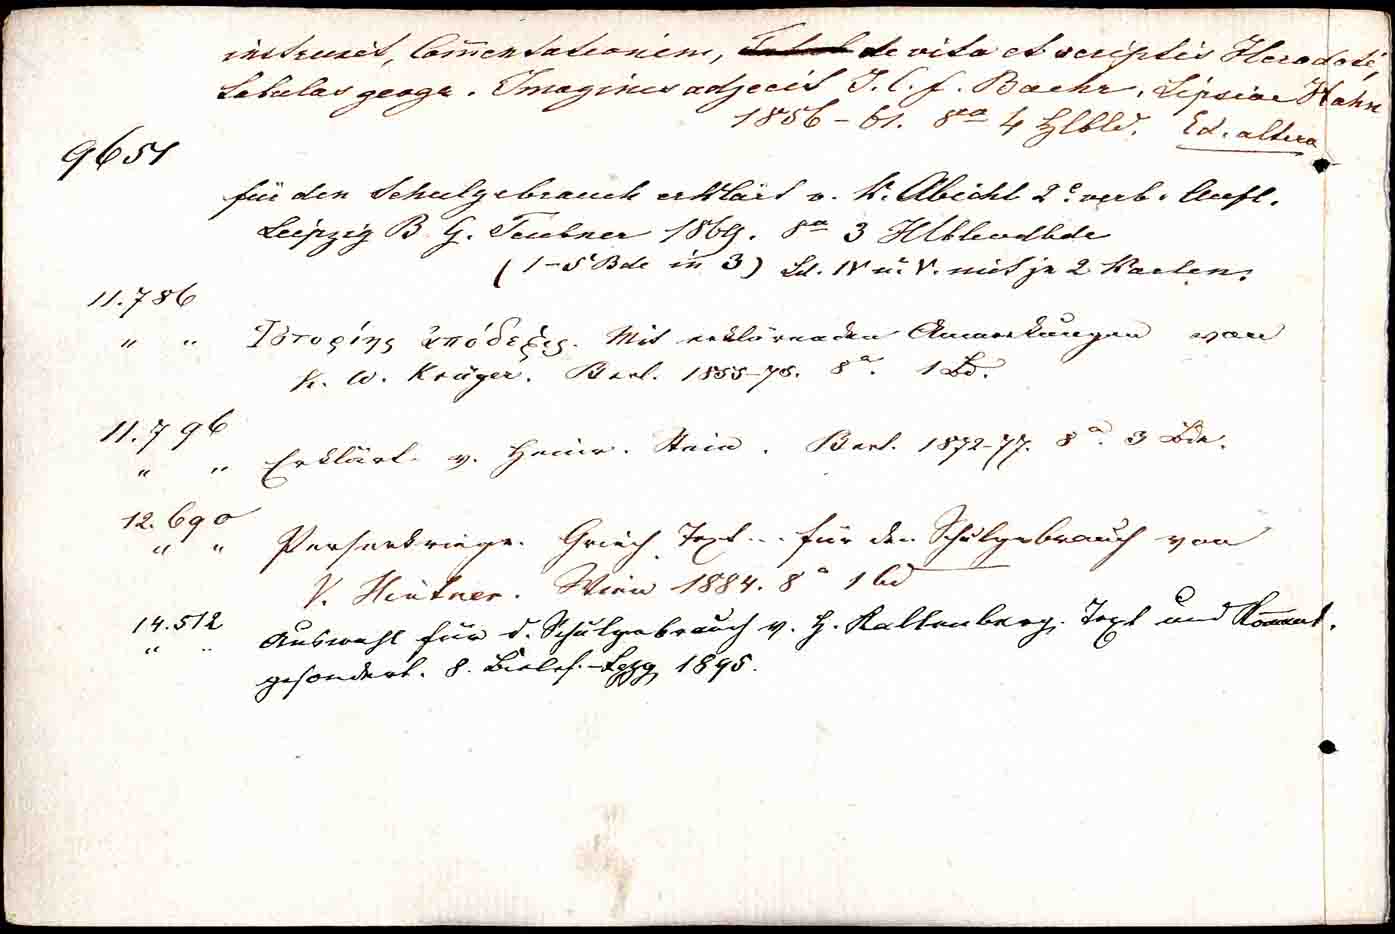 instruxit, Com̄entationem, de vita et scriptis Herodoti,
tabulas geogr. Imagines adjecit J. C. f. Baehr. Lipsiae Hahn
1856–61. 8va 4 Hlbld. Ed. altera
9651
für den Schulgebrauch erklärt v. K. Abicht 2e verb. Aufl.
Leipzig B. G. Teubner 1869. 8a 3 Hlblwdbde
(1–5 Bde in 3) Bd. IV u. V. mit je 2 Karten.
11.786
" " Ἱστορίης ἀπόδεξις. Mit erklärenden Anmerkungen von
K. W. Krüger. Berl. 1855–75. 8a. 1 Bd.
11.796
" " Erklärt v. Heinr. Stein. Berl. 1872–77. 8a. 3 Bde.
12.690
" " Perserkriege. Griech. Text... für den Schulgebrauch von
V. Hintner. Wien 1884. 8a 1 bd
14.512
" " Auswahl für d. Schulgebrauch v. H. Kallenberg. Text und Kom̄ent.
gesondert. 8. Bielef.–Lpzg 1895.